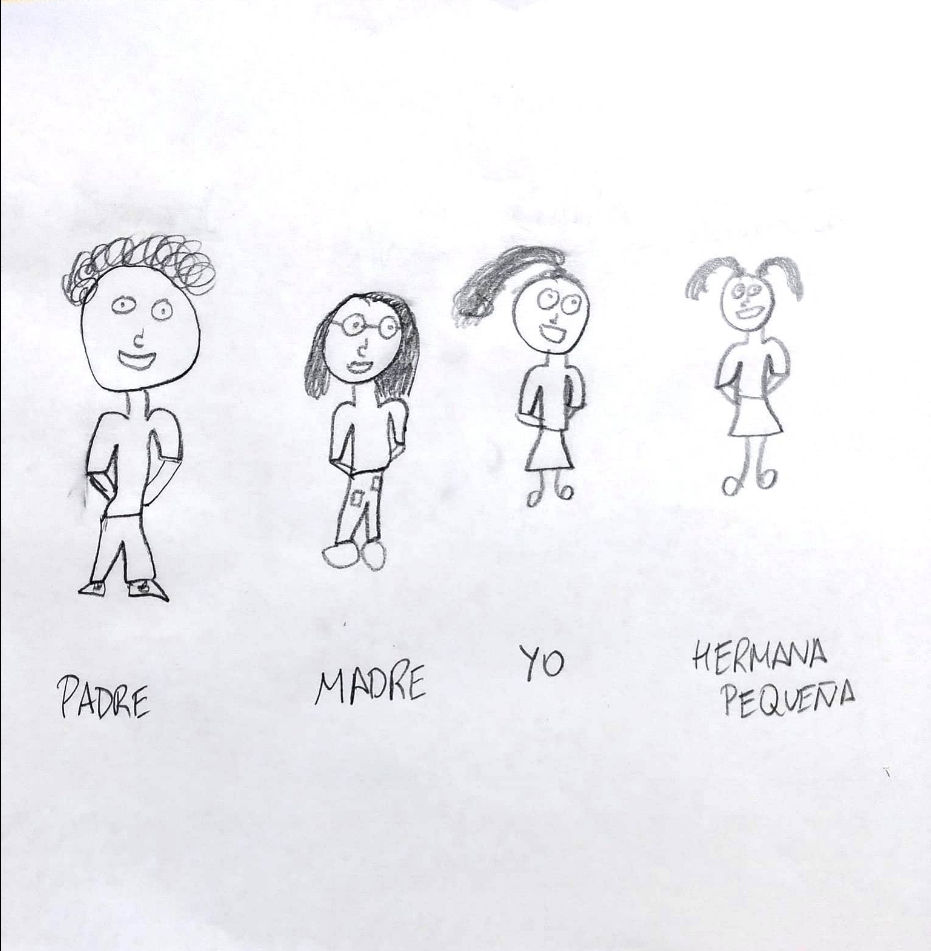 PADRE
MADRE
YO
HERMANA
PEQUEÑA